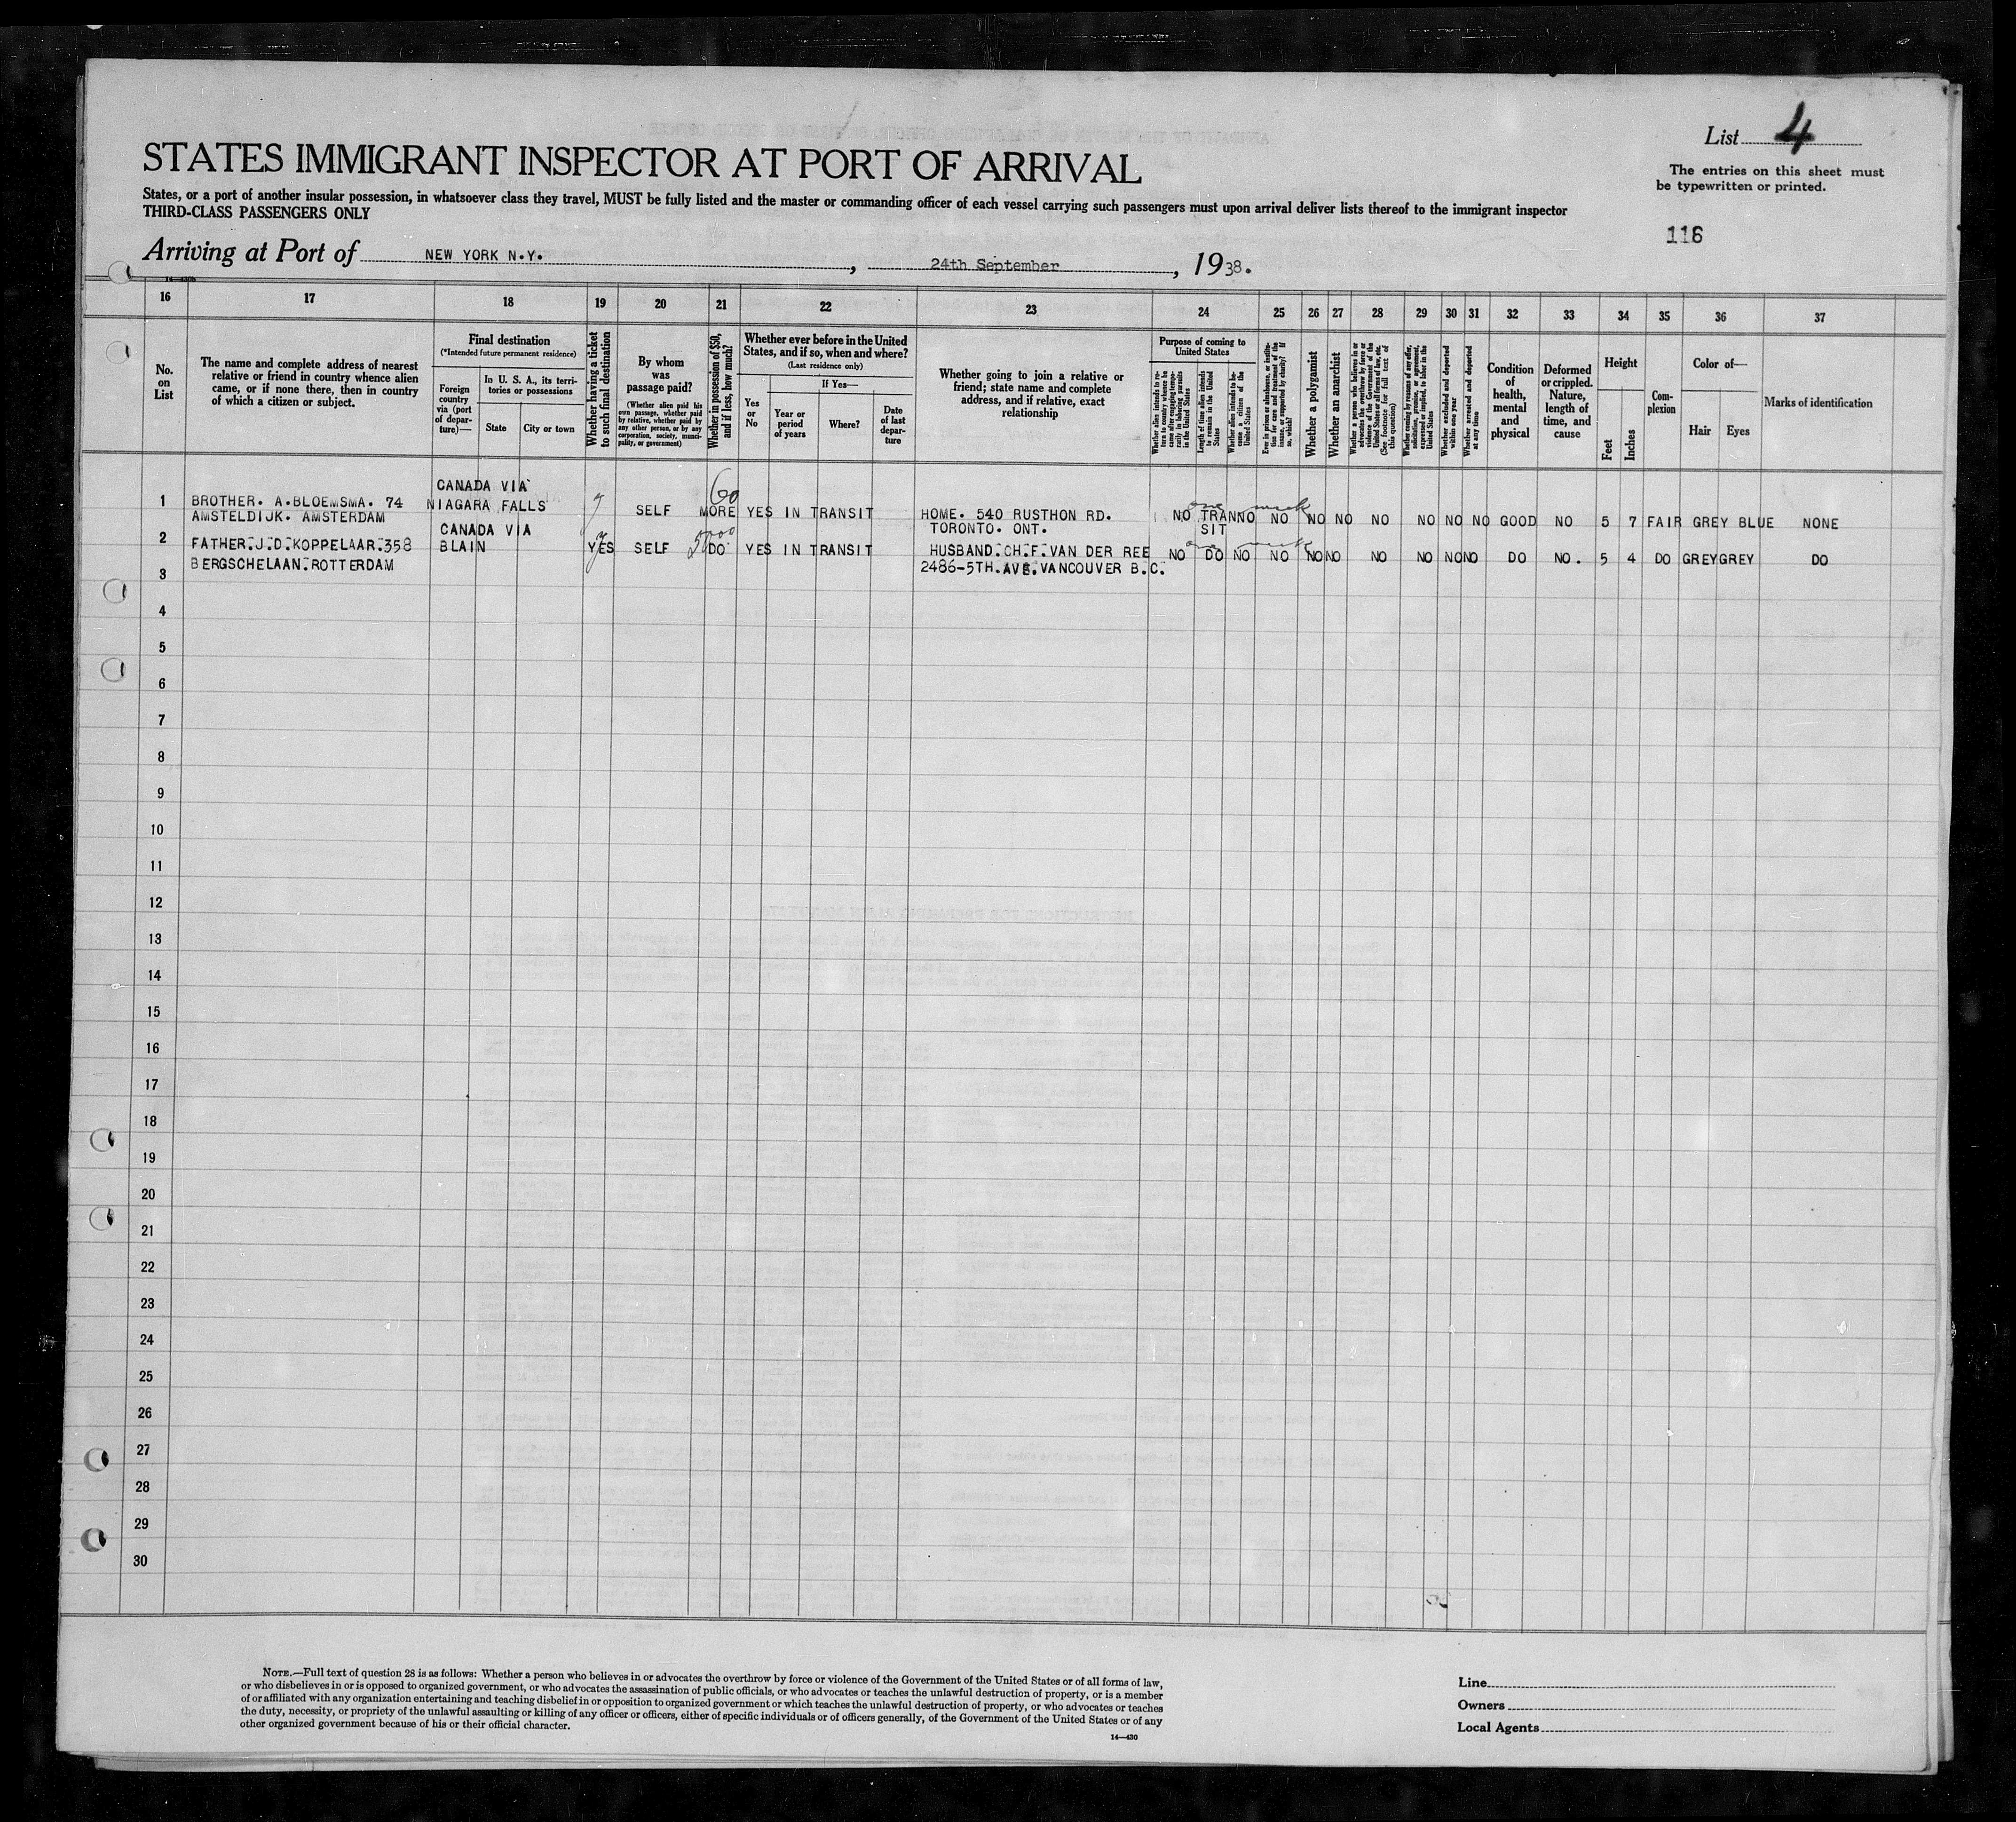 List 4
STATES IMMIGRANT INSPECTOR AT PORT OF ARRIVAL
The entries on this sheet must
be typewritten or printed.
States, or a port of another insular possession, in whatsoever class they travel, MUST be fully listed and the master or commanding officer of each vessel carrying such passengers must upon arrival deliver lists thereof to the immigrant inspector
THIRD-CLASS PASSENGERS ONLY
116
Arriving at Port of NEW YORK N.Y. , 24th September , 1938.
16 17 18 19 20 21 22 23 24 25 26 27 28 29 30 31 32 33 34 35 36 37
No.
on
List
The name and complete address of nearest
relative or friend in country whence alien
came, or if none there, then in country
of which a citizen or subject.
Final destination
(*Intended future permanent residence)
Foreign
country
via (port
of depar-
ture)—
In U. S. A., its terri-
tories or possessions
State
City or town
Whether having a ticket
to such final destination
By whom
was
passage paid?
(Whether alien paid his
own passage, whether paid
by relative, whether paid by
any other person, or by any
corporation, society, munici-
pality, or government)
Whether in possession of $50,
and if less, how much?
Whether ever before in the United
States, and if so, when and where?
(Last residence only)
Yes
or
No
If Yes—
Year or
period
of years
Where?
Date
of last
depar-
ture
Whether going to join a relative or
friend; state name and complete
address, and if relative, exact
relationship
Purpose of coming to
United States
Whether alien intends to re-
turn to country whence he
came after engaging tempo-
rarily in laboring pursuits
in the United States
Length of time alien intends
to remain in the United
States
Whether alien intends to be-
come a citizen of the
United States
Ever in prison or almshouse, or institu-
tion for care and treatment of the
insane, or supported by charity? If
so, which?
Whether a polygamist
Whether an anarchist
Whether a person who believes in or
advocates the overthrow by force or
violence of the Government of the
United States or all forms of law, etc.
(See footnote for full text of
this question)
Whether coming by reasons of any offer,
solicitation, promise, or agreement,
expressed or implied, to labor in the
United States
Whether excluded and deported
within one year
Whether arrested and deported
at any time
Condition
of
health,
mental
and
physical
Deformed
or crippled.
Nature,
length of
time, and
cause
Height
Feet
Inches
Com-
plexion
Color of—
Hair
Eyes
Marks of identification
CANADA VIA 60
1 BROTHER. A.BLOEMSMA. 74 NIAGARA FALLS y SELF MORE YES IN TRANSIT HOME. 540 RUSTHON RD. NO TRAN NO NO NO NO NO NO NO NO GOOD NO 5 7 FAIR GREY BLUE NONE
one week
AMSTELDIJK. AMSTERDAM TORONTO. ONT. SIT
CANADA VIA 5000
2 FATHER.J.D.KOPPELAAR.358 BLAIN YES SELF DO YES IN TRANSIT HUSBAND.CH.F.VAN DER REE NO DO NO NO NO NO NO NO NO NO DO NO. 5 4 DO GREY GREY DO
one week
BERGSCHELAAN.ROTTERDAM 2486-5TH.AVE.VANCOUVER B.C.
3
4
5
6
7
8
9
10
11
12
13
14
15
16
17
18
19
20
21
22
23
24
25
26
27
28
29
30
NOTE.—Full text of question 28 is as follows: Whether a person who believes in or advocates the overthrow by force or violence of the Government of the United States or of all forms of law,
or who disbelieves in or is opposed to organized government, or who advocates the assassination of public officials, or who advocates or teaches the unlawful destruction of property, or is a member
of or affiliated with any organization entertaining and teaching disbelief in or opposition to organized government or which teaches the unlawful destruction of property, or who advocates or teaches
the duty, necessity, or propriety of the unlawful assaulting or killing of any officer or officers, either of specific individuals or of officers generally, of the Government of the United States or of any
other organized government because of his or their official character.
14—430
Line
Owners
Local Agents